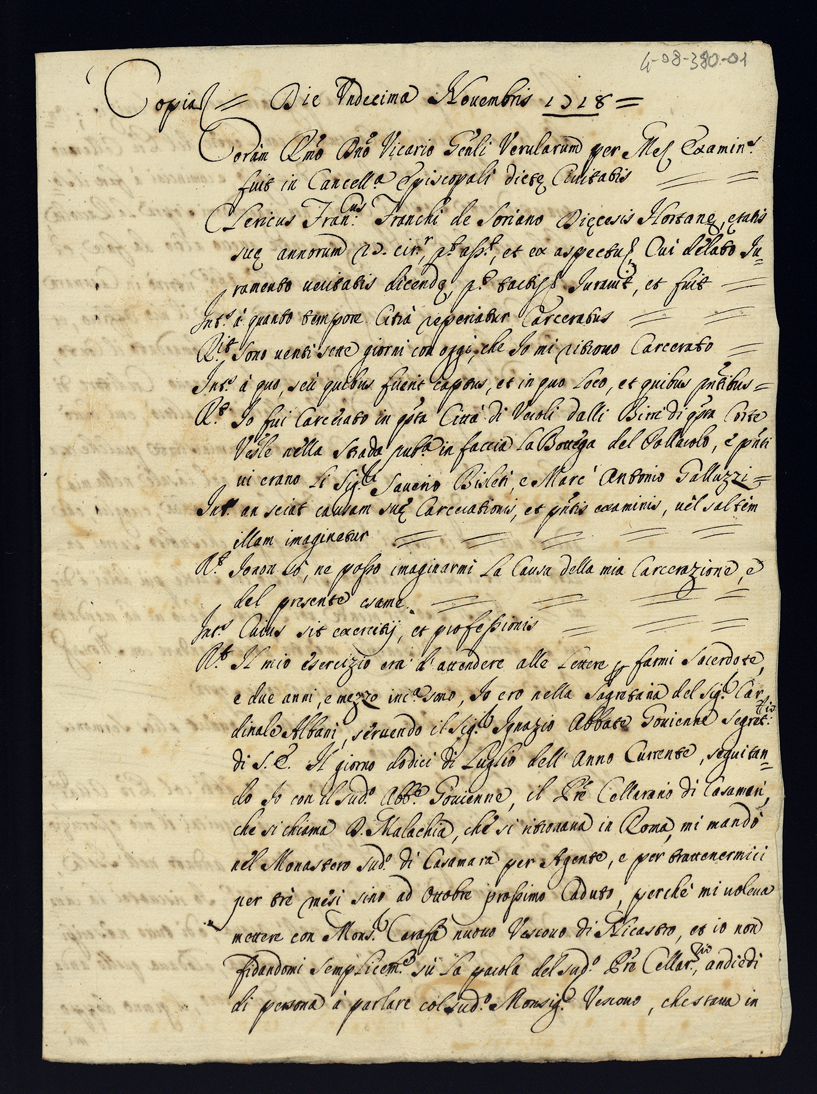 4-08-380-01
Copia = Die Undecima Novembris 1718 =
Coram Rmo Dno Vicario Gnli Verularum per Me Examins
fuit in Cancella Episcopali dictę Civitatis
Clericus Francus Franchi de Soriano Dięcesis Hortanę, ętatis
suę annorum cirr, pt asst, et ex aspectu, Cui delato Ju-
ramento veritatis dicendę, pt tactis Juravit, et fuit
Ints à quanto tempore Citrà reperiatur Carceratus
Rt Sono venti sette giorni con oggi, che Jo mi ritrovo Carcerato
Ints à quo, seù quibus fuerit captus, et in quo Loco, et quibus pntibus =
Rt Jo fui Carcerato in qsta Città di Veroli dalli Birri di qsta Corte
Vesle nella strada pubca in faccia La Bottega del Pollarolo, e pnti
vi erano Li Sigri Saverio Bisleti, e Marc' Antonio Galluzzi =
Ints an sciat causam suę Carcerationis, et pntis examinis, vèl saltèm
illam imaginetur
Rt Jo non sò, ne posso imaginarmi La Causa della mia Carcerazione, e
del presente esame
Ints Cuius sit exercitij, et professionis
Rt Il mio esercizio era d'attendere alle Lettere p farmi Sacerdote,
e due anni, e mezzo inca sono, Jo ero nella Sagretaria del Sigr Car-
dinale Albani, servendo il Sigr Ignazio Abbate Govienne Segretrio
di S. E. Il giorno dodici di Luglio dell' Anno Currente, seguitan-
do Jo con il sudo Abbe Govienne, il Pre Cellarario di Casamari,
che si chiama D. Malachia, che si ritrovava in Roma, mi mandò
nèl Monastero sudo di Casamara per Agente, e per trattenermici
per trè mesi sino ad Ottobre prossimo Caduto, perchè mi voleva
mettere con Monsr Carafa nuovo Vescovo di Alicastro, et io non
fidandomi semplicemte sù La parola del sudo Pre Cellarrio, andiedi
di persona à parlare col sudo Monsigr Vescovo, che stava in